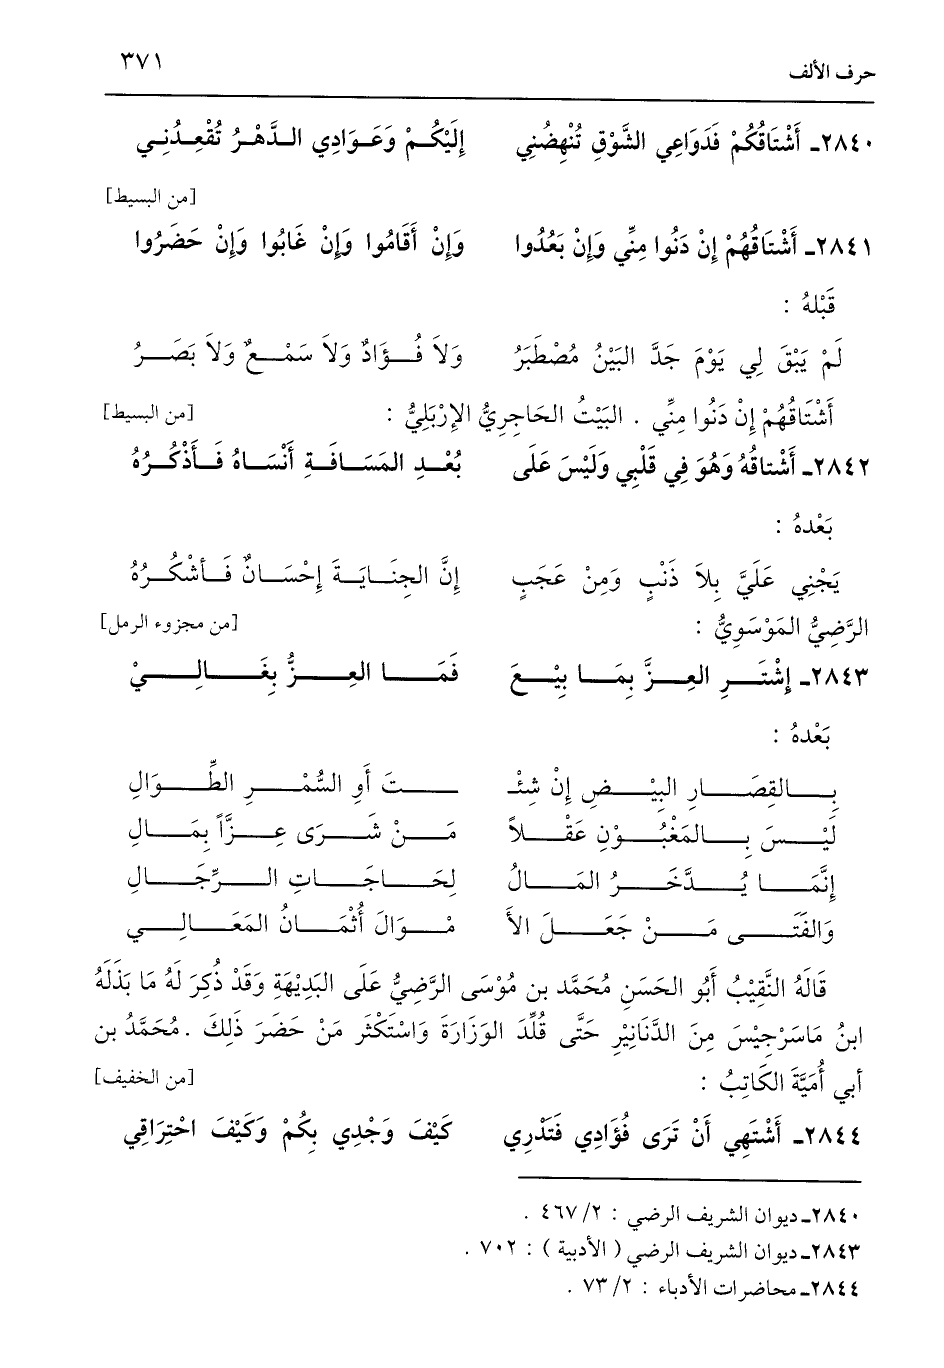 حرف الألف ٣٧١
٢٨٤٠ـ أَشْتَاقُكُمْ فَدَوَاعِي الشَّوْقِ تُنْهِضُنِي إِلَيْكُمْ وَعَوَادِي الدَّهْرُ تُقْعِدُنِي
[من البسيط]
٢٨٤١ـ أَشْتَاقُهُمْ إِنْ دَنُوا مِنِّي وَإِنْ بَعُدُوا وَإِنْ أَقَامُوا وَإِنْ غَابُوا وَإِنْ حَضَرُوا
قَبْلهُ :
لَمْ يَبْقَ لِي يَوْمَ جَدَّ البَيْنُ مُصْطَبَرُ وَلاَ فُؤَادٌ وَلاَ سَمْعٌ وَلاَ بَصَرُ
أَشْتَاقُهُمْ إِنْ دَنُوا مِنِّي . البَيْتُ الحَاجِرِيُّ الإِرْبَلِيُّ : [من البسيط]
٢٨٤٢ـ أَشْتاقهُ وَهُوَ فِي قَلْبِي وَلَيْسَ عَلَى بُعْدِ المَسَافَةِ أَنْسَاهُ فَأَذْكُرُهُ
بَعْدهُ :
يَجْنِي عَلَيَّ بِلاَ ذَنْبٍ وَمِنْ عَجَبٍ إِنَّ الجِنَايَةَ إِحْسَانٌ فَأشْكُرُهُ
الرَّضِيُّ المَوْسَوِيُّ : [من مجزوء الرمل]
٢٨٤٣ـ إِشْتَرِ العِزَّ بِمَا بِيْعَ فَمَا العِزُّ بِغَالِيْ
بَعْدهُ :
بِالقِصَارِ البِيْضِ إِنْ شِئْـ ـتَ أَوِ السُّمْرِ الطِّوَالِ
لَيْسَ بِالمَغْبُوْنِ عَقْلاً مَنْ شَرَى عِزَّاً بِمَالِ
إِنَّمَا يُدَّخَرُ المَالُ لِحَاجَاتِ الرِّجَالِ
وَالفَتَى مَنْ جَعَلَ الأَ مْوَالَ أَثْمَانُ المَعَالِي
قَالَهُ النَّقِيْبُ أَبُو الحَسَنِ مُحَمَّد بن مُوْسَى الرَّضِيُّ عَلَى البَدِيْهَةِ وَقَدْ ذُكِرَ لَهُ مَا بَذَلَهُ
ابنُ مَاسَرْجِيْسَ مِنَ الدَّنَانِيْرِ حَتَّى قُلِّدَ الوَزَارَةَ وَاسْتَكْثَر مَنْ حَضَرَ ذَلِكَ . مُحَمَّدُ بن
أبي أُمَيَّةَ الكَاتِبُ : [من الخفيف]
٢٨٤٤ـ أَشْتَهِي أَنْ تَرَى فُؤَادِي فَتَدْرِي كَيْفَ وَجْدِي بِكُمْ وَكَيْفَ احْتِرَاقِي
٢٨٤٠ـ ديوان الشريف الرضي : ٢/ ٤٦٧ .
٢٨٤٣ـ ديوان الشريف الرضي ( الأدبية ) : ٧٠٢ .
٢٨٤٤ـ محاضرات الأدباء : ٢/ ٧٣ .